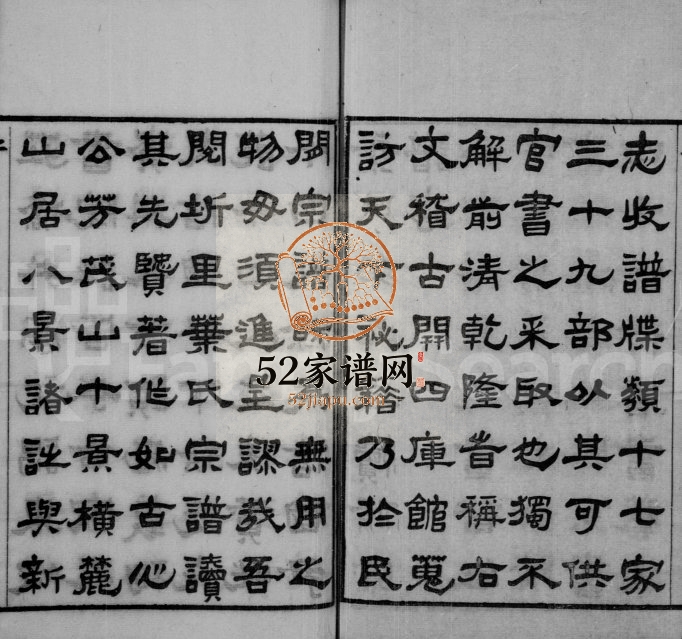 志收譜牒類十七家
三十九部以其可供
官書之采取也獨不
解前清乾隆昔稱右
文稽古開四庫館蒐
訪天下祕籍乃於民
間宗譜無用之
物毋須進呈謬哉吾
閱圻里葉氏宗譜讀
其先賢著作如古心
公芳茂山十景橫麓
山居八景諸詠與新
52家谱网